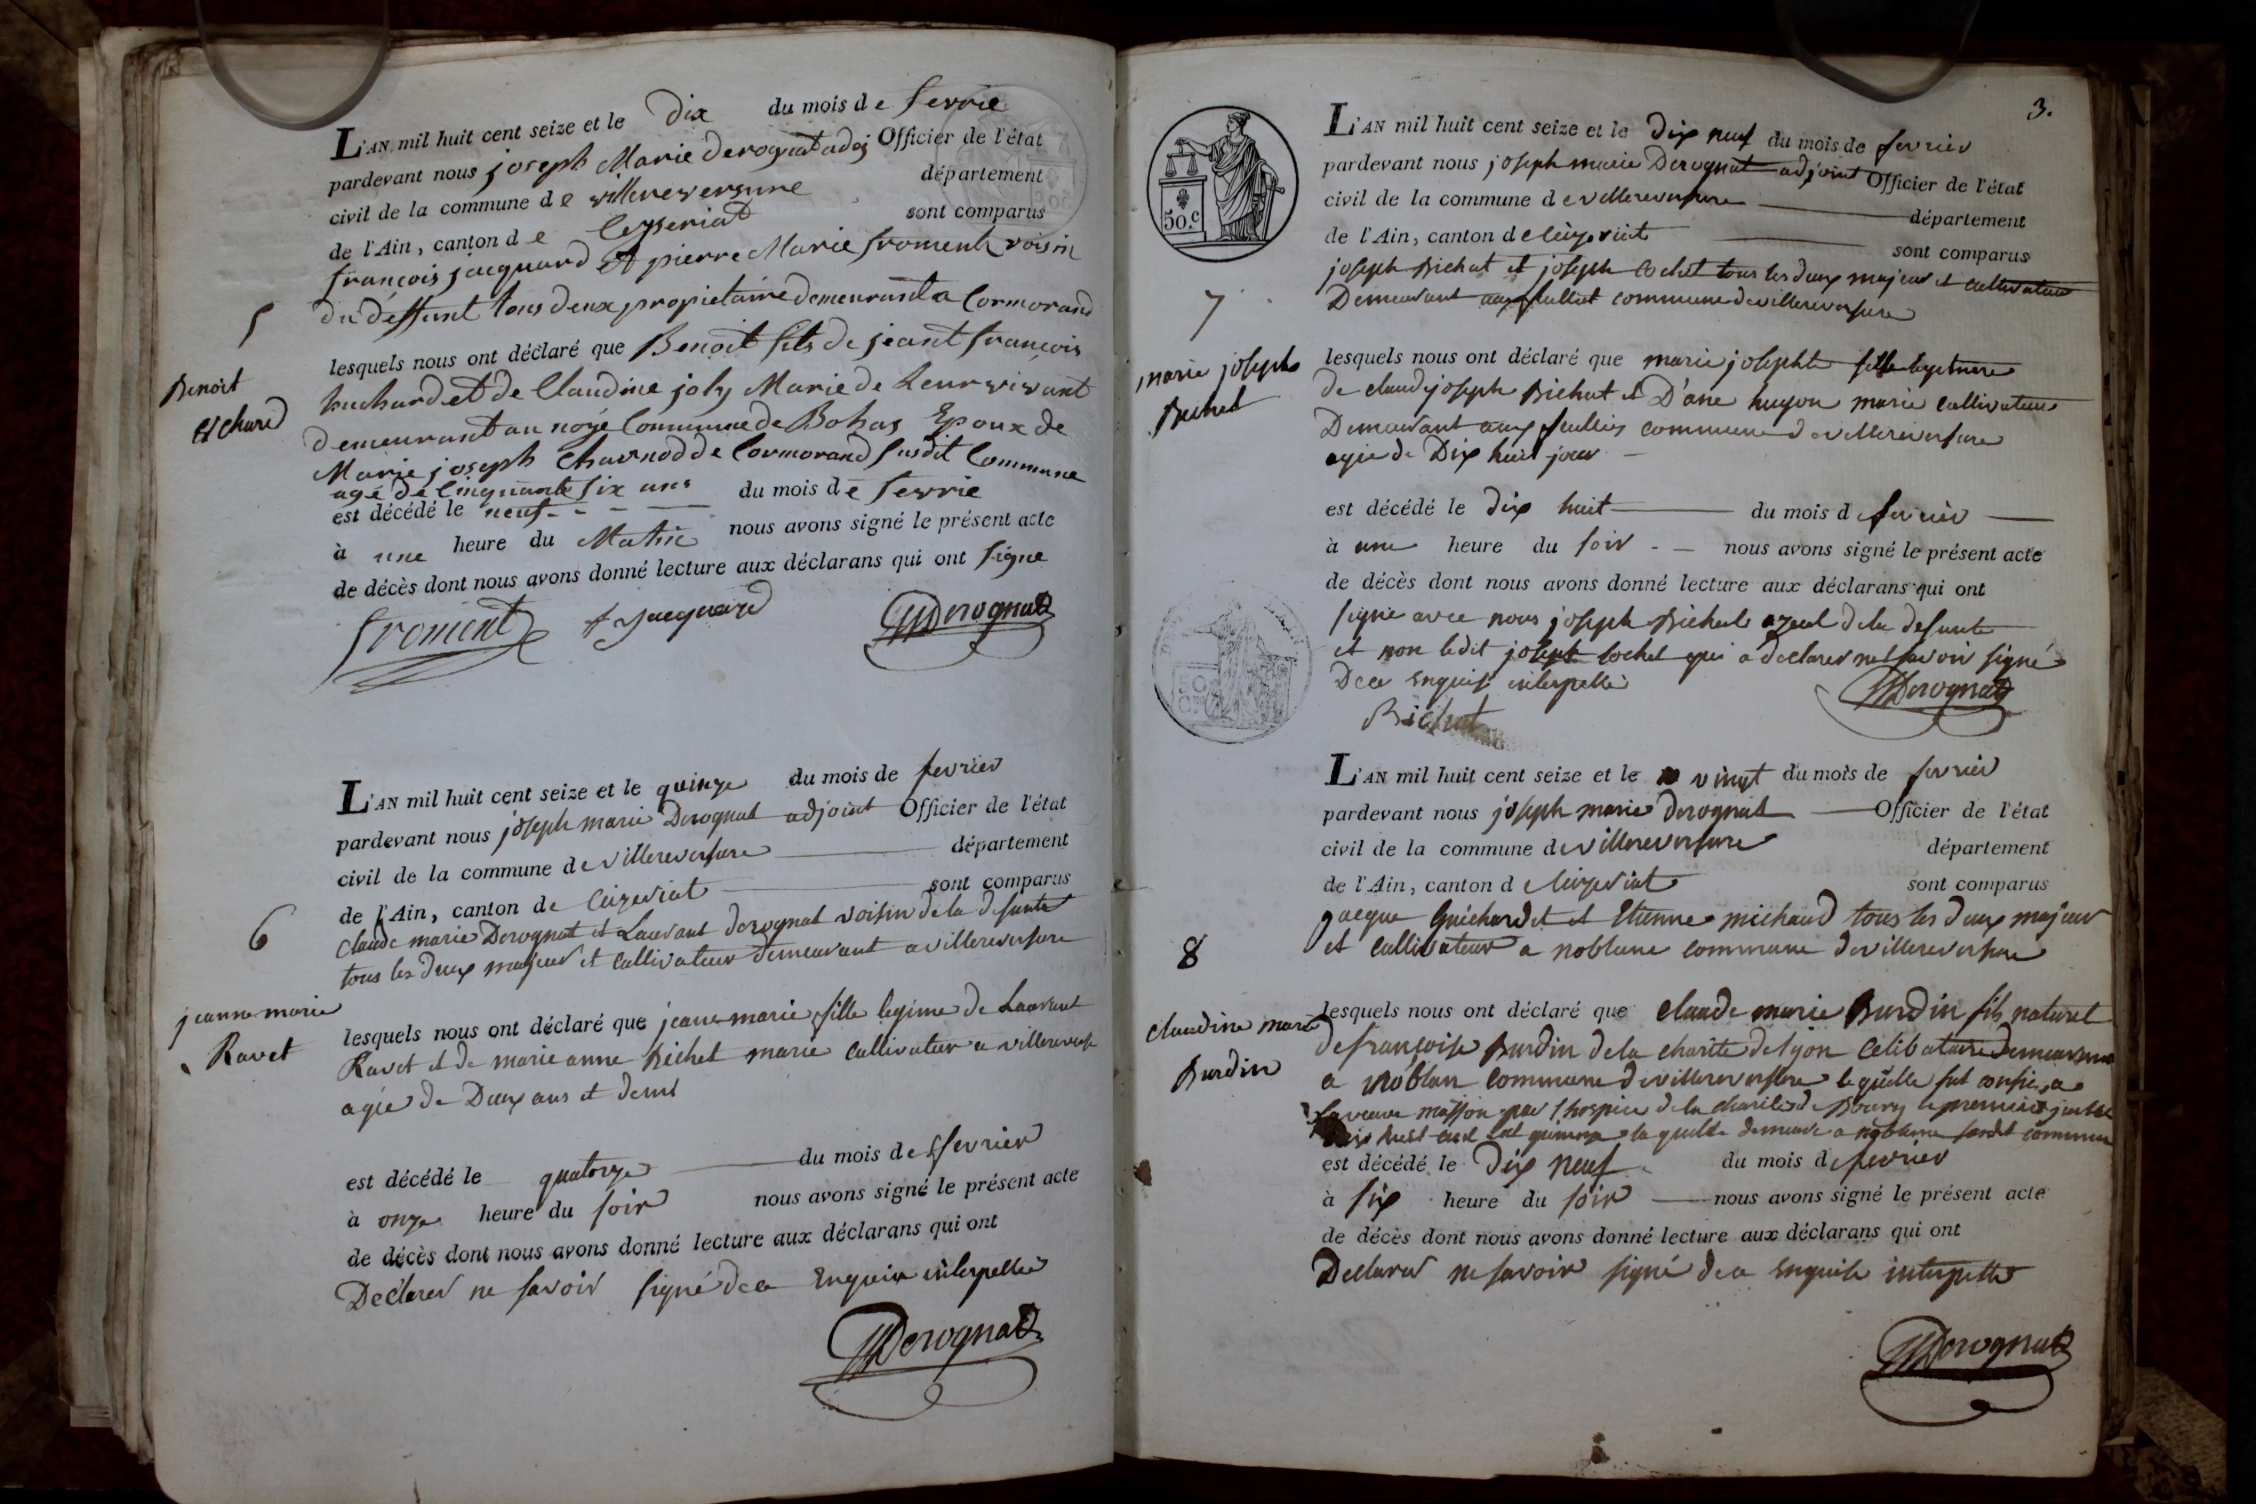 L'AN mil huit cent seize et le Dix du mois de fevrie
pardevant nous joseph Marie derognat adoj Officier de l'état
civil de la commune de villereversure département
de l'Ain, canton de Ceyseriat sont comparus
françois jacquard et pierre Marie froment voisin
du deffunt tous deux propietaire demeurant a Cormorand
5
lesquels nous ont déclaré que Benoit fils de jeant françois
Benoit
huchard et de Claudine joly Marie de leur vivant
demeurant au noyé Commune de Bohas Epoux de
Marie joseph Charnod de Cormorand susdit Commune
agé de Cinquante six ans
est décédé le neuf du mois de fevrie
à une heure du Matin nous avons signé le présent acte
de décès dont nous avons donné lecture aux déclarans qui ont signe
froment f jacquard JMDerognat
L'AN mil huit cent seize et le quinze du mois de fevrier
pardevant nous joseph marie Derognat adjoint Officier de l'état
civil de la commune de villereversure département
de l'Ain, canton de Ceizeriat sont comparus
claude marie Derognat et Laurant derognat voisin de la defunte
6
tous les deux majeur et cultivateur demeurant a villereversure
jeanne marie
Ravet
lesquels nous ont déclaré que jeane marie fille legime de Laurent
Ravet et de marie anne Bichet marie cultivateur a villereversure
agie de Deux ans et demi
est décédé le quatorze du mois de fevrier
à onze heure du soir nous avons signé le présent acte
de décès dont nous avons donné lecture aux déclarans qui ont
Déclarer ne savoir signé de ce Enquis interpellé
JMDerognat
3.
50.c
L'AN mil huit cent seize et le dix neuf du mois de fevrier
pardevant nous joseph marie Derognat adjoint Officier de l'état
civil de la commune de villereversure département
de l'Ain, canton de Ceizeriat sont comparus
joseph Bichat et joseph Cochet tous les deux majeur et cultivateur
Demeurant aux commune de villereversure
7
marie joseph
lesquels nous ont déclaré que marie josephte fille legitimere
de claude joseph Bichat et D'ane huyon marie cultivateur
Demeurant aux commune de villereversure
agie de Dix huit jour
est décédé le dix huit du mois de fevrier
à une heure du soir nous avons signé le présent acte
de décès dont nous avons donné lecture aux déclarans qui ont
signé avec nous joseph Bichat ayeul de la defunte
et non ledit joseph Cochet qui a declarer ne savoir signé
De ce Enquis interpellé
Bichat JMDerognat
L'AN mil huit cent seize et le vingt du mois de fevrier
pardevant nous joseph marie derognat Officier de l'état
civil de la commune de villereversure département
de l'Ain, canton de Ceizeriat sont comparus
jacque Guichardet et Etienne michaud tous les deux majeur
8
et cultivateur a noblane commune de villereversure
claudine marie
Burdin
lesquels nous ont déclaré que claude marie Burdin fils naturel
de françoise Burdin de la charite de lyon Celibataire Demeurant
a noblan commune de villereversure lequelle fut confie a
la veuve masson par l'hospice de la charité de Bourg le premier
la quelle demeure a noblane susdit commune
est décédé le dix neuf du mois de fevrier
à six heure du soir nous avons signé le présent acte
de décès dont nous avons donné lecture aux déclarans qui ont
Déclarer ne savoir signé de ce Enquis interpellé
JMDerognat